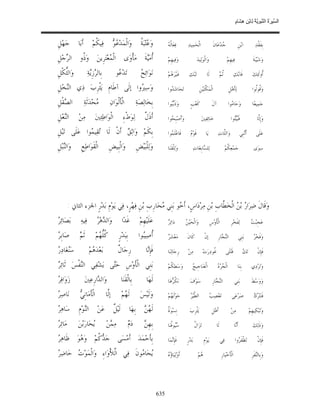 السِّيرَةُ النَّبَوِيَّةُ لِابْنِ هِشَامٍ
لِفَقْدِ ابْنِ جُدْعَانَ الْحَمِيدِ فِعَالُهُ وَعُتْبَةَ وَالْمَدْعُوِّ فِيكُمْ أَبَا جَهْلِ
وَشَيْبَةَ فِيهِمْ وَالْوَلِيدَ وَفِيهِمْ أُمَيَّةُ مَأْوَى الْمُعْتَرِينَ وَذُو الرَّجْلِ
أُولَئِكَ فَابْكِ ثُمَّ لَا تَبْكِ غَيْرَهُمْ نَوَائِحُ تَدْعُو بِالرَّزِيَّةِ وَالثُّكْلِ
وَقُولُوا لِأَهْلِ الْمَكَّتَيْنِ تَحَاشَدُوا وَسِيرُوا إلَى آطَامِ يَثْرِبَ ذِي النَّخْلِ
جَمِيعًا وَحَامُوا آلَ كَعْبٍ وَذَبِّبُوا بِخَالِصَةِ الْأَلْوَانِ مُحْدَثَةِ الصَّقْلِ
وَإِلَّا فَبِيتُوا خَائِفِينَ وَأَصْبِحُوا أَذَلَّ لِوَطْءِ الْوَاطِئِينَ مِنْ النَّعْلِ
عَلَى أَنَّنِي وَاللَّاتِ يَا قَوْمُ فَاعْلَمُوا بِكَمْ وَاثِقٌ أَنْ لَا تُقِيمُوا عَلَى تَبْلِ
سِوَى جَمْعِكُمْ لِلسَّابِغَاتِ وَلِلْقَنَا وَلِلْبَيْضِ وَالْبِيضِ الْقَوَاطِعِ وَالنَّبْلِ
وَقَالَ ضِرَارُ بْنُ الْخَطَّابِ بْنِ مِرْدَاسٍ، أَخُو بَنِي مُحَارِبِ بْنِ فِهْرٍ، فِي يَوْمِ بَدْرٍ الجزء الثاني .
عَجِبْتُ لِفَخْرِ الْأَوْسِ وَالْحَيْنُ دَائِرُ عَلَيْهِمْ غَدًا وَالدَّهْرُ فِيهِ بَصَائِرُ
وَفَخْرِ بَنِي النَّجَّارِ إنْ كَانَ مَعْشَرٌ أُصِيبُوا بِبَدْرٍ كُلُّهُمْ ثَمَّ صَابِرُ
فَإِنْ تَكُ قَتْلَى غُودِرَتْ مِنْ رِجَالِنَا فَإِنَّا رِجَالٌ بَعْدَهُمْ سَنُغَادِرُ
وَتَرْدِي بِنَا الْجُرْدُ الْعَنَاجِيجُ وَسْطَكُمْ بَنِي الْأَوْسِ حَتَّى يَشْفِيَ النَّفْسَ ثَائِرُ
وَوَسْطَ بَنِي النَّجَّارِ سَوْفَ نَكُرُّهَا لَهَا بِالْقَنَا وَالدَّارِعِينَ زَوَافِرُ
فَنَتْرُكُ صَرْعَى تَعْصِبُ الطَّيْرُ حَوْلَهُمْ وَلَيْسَ لَهُمْ إلَّا الْأَمَانِيُّ نَاصِرُ
وَتَبْكِيهِمْ مِنْ أَهْلِ يَثْرِبَ نِسْوَةٌ لَهُنَّ بِهَا لَيْلٌ عَنْ النَّوْمِ سَاهِرُ
وَذَلِكَ أَنَّا لَا تَزَالُ سُيُوفُنَا بِهِنَّ دَمٌ مِمَّنْ يُحَارِبْنَ مَائِرُ
فَإِنْ تَظْفَرُوا فِي يَوْمِ بَدْرٍ فَإِنَّمَا بِأَحْمَدَ أَمْسَى جَدُّكُمْ وَهُوَ ظَاهِرُ
وَبِالنَّفَرِ الْأَخْيَارِ هُمْ أَوْلِيَاؤُهُ يُحَامُونَ فِي اللَّأْوَاءِ وَالْمَوْتُ حَاضِرُ
635